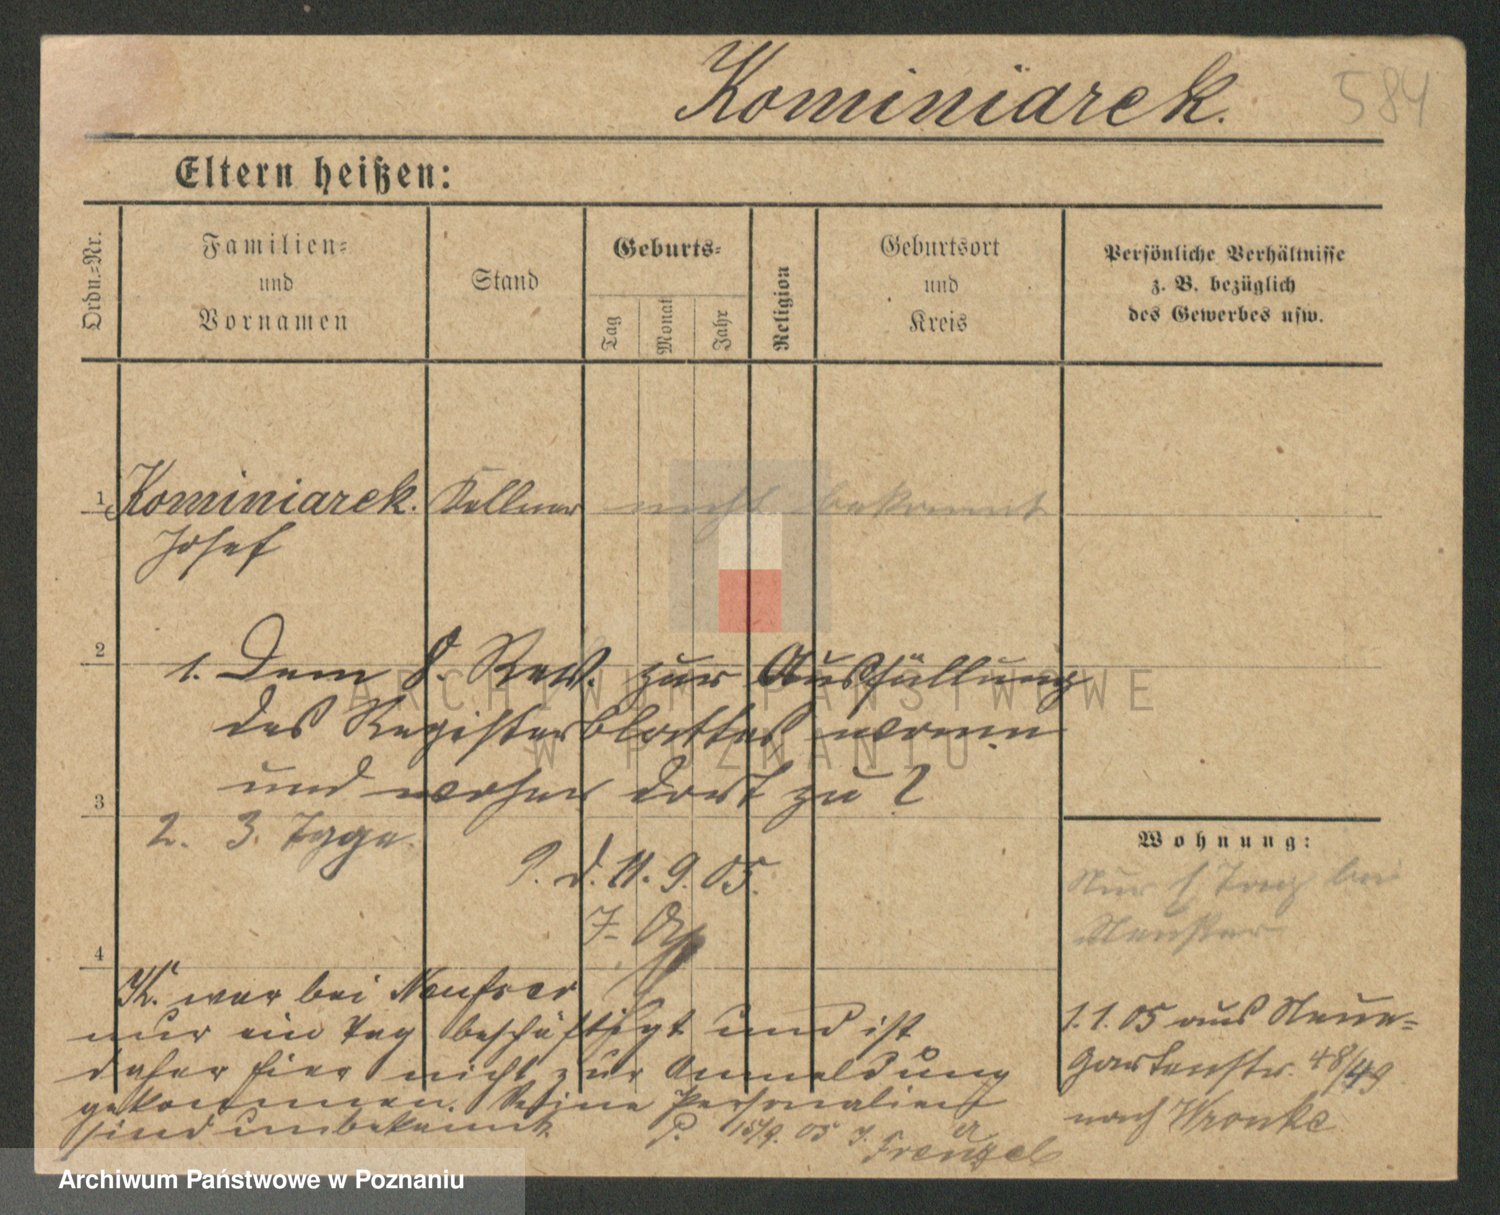 Kominiarek.
584
Eltern heißen:
Ordn.=Nr.
Familien=
und
Vornamen
Stand
Geburts=
Tag
Monat
Jahr
Religion
Geburtsort
und
Kreis
Persönliche Verhältnisse
z. B. bezüglich
des Gewerbes usw.
1 Kominiarek. Kellner nicht bekannt
Josef
2
1. Dem 8. Rev. zur Ausfüllung
des Registerblattes wann
und woher dort zu?
3
2. 3. Tage.
P. d. 11. 9. 05.
Wohnung:
Nur 1 Tag bei
4
K. war bei
nur ein Tag beschäftigt und ist
daher hier nicht zur Anmeldung
gekommen. Seine Personalien
sind unbekannt.
P. 15/9. 05
Frenzel
1.1.05 aus Neue=
Gartenstr. 48/49
nach Wronke
ARCHIWUM PAŃSTWOWE
W POZNANIU
Archiwum Państwowe w Poznaniu